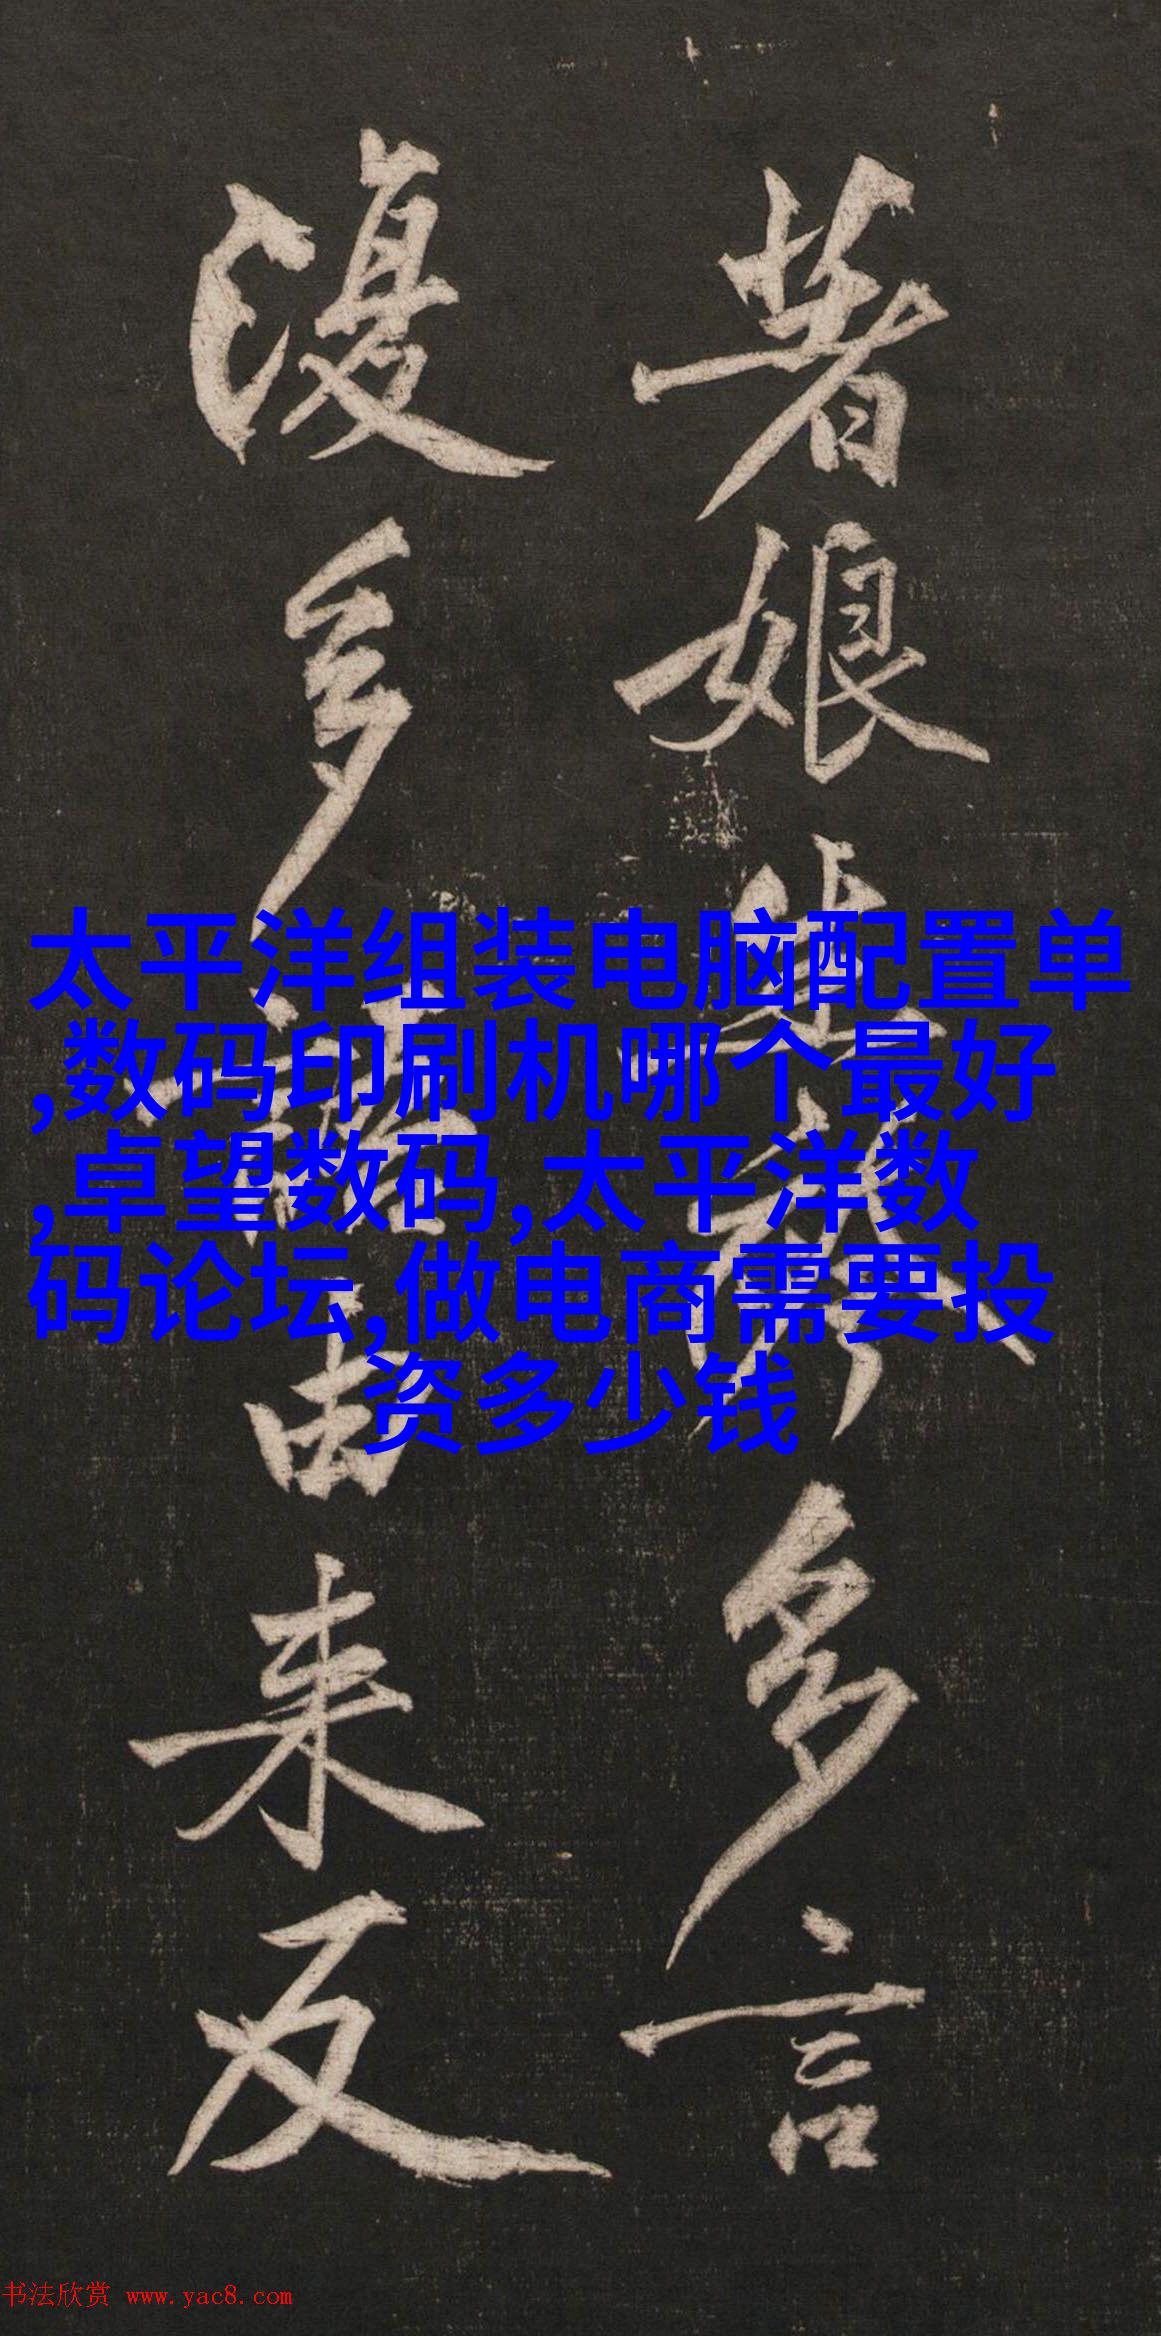 著娘生袴多言
復多語由来反
太平洋组装电脑配置单
,数码印刷机哪个最好
,卓望数码,太平洋数
码论坛,做电商需要投
资多少钱
书法欣赏 www.yac8.com